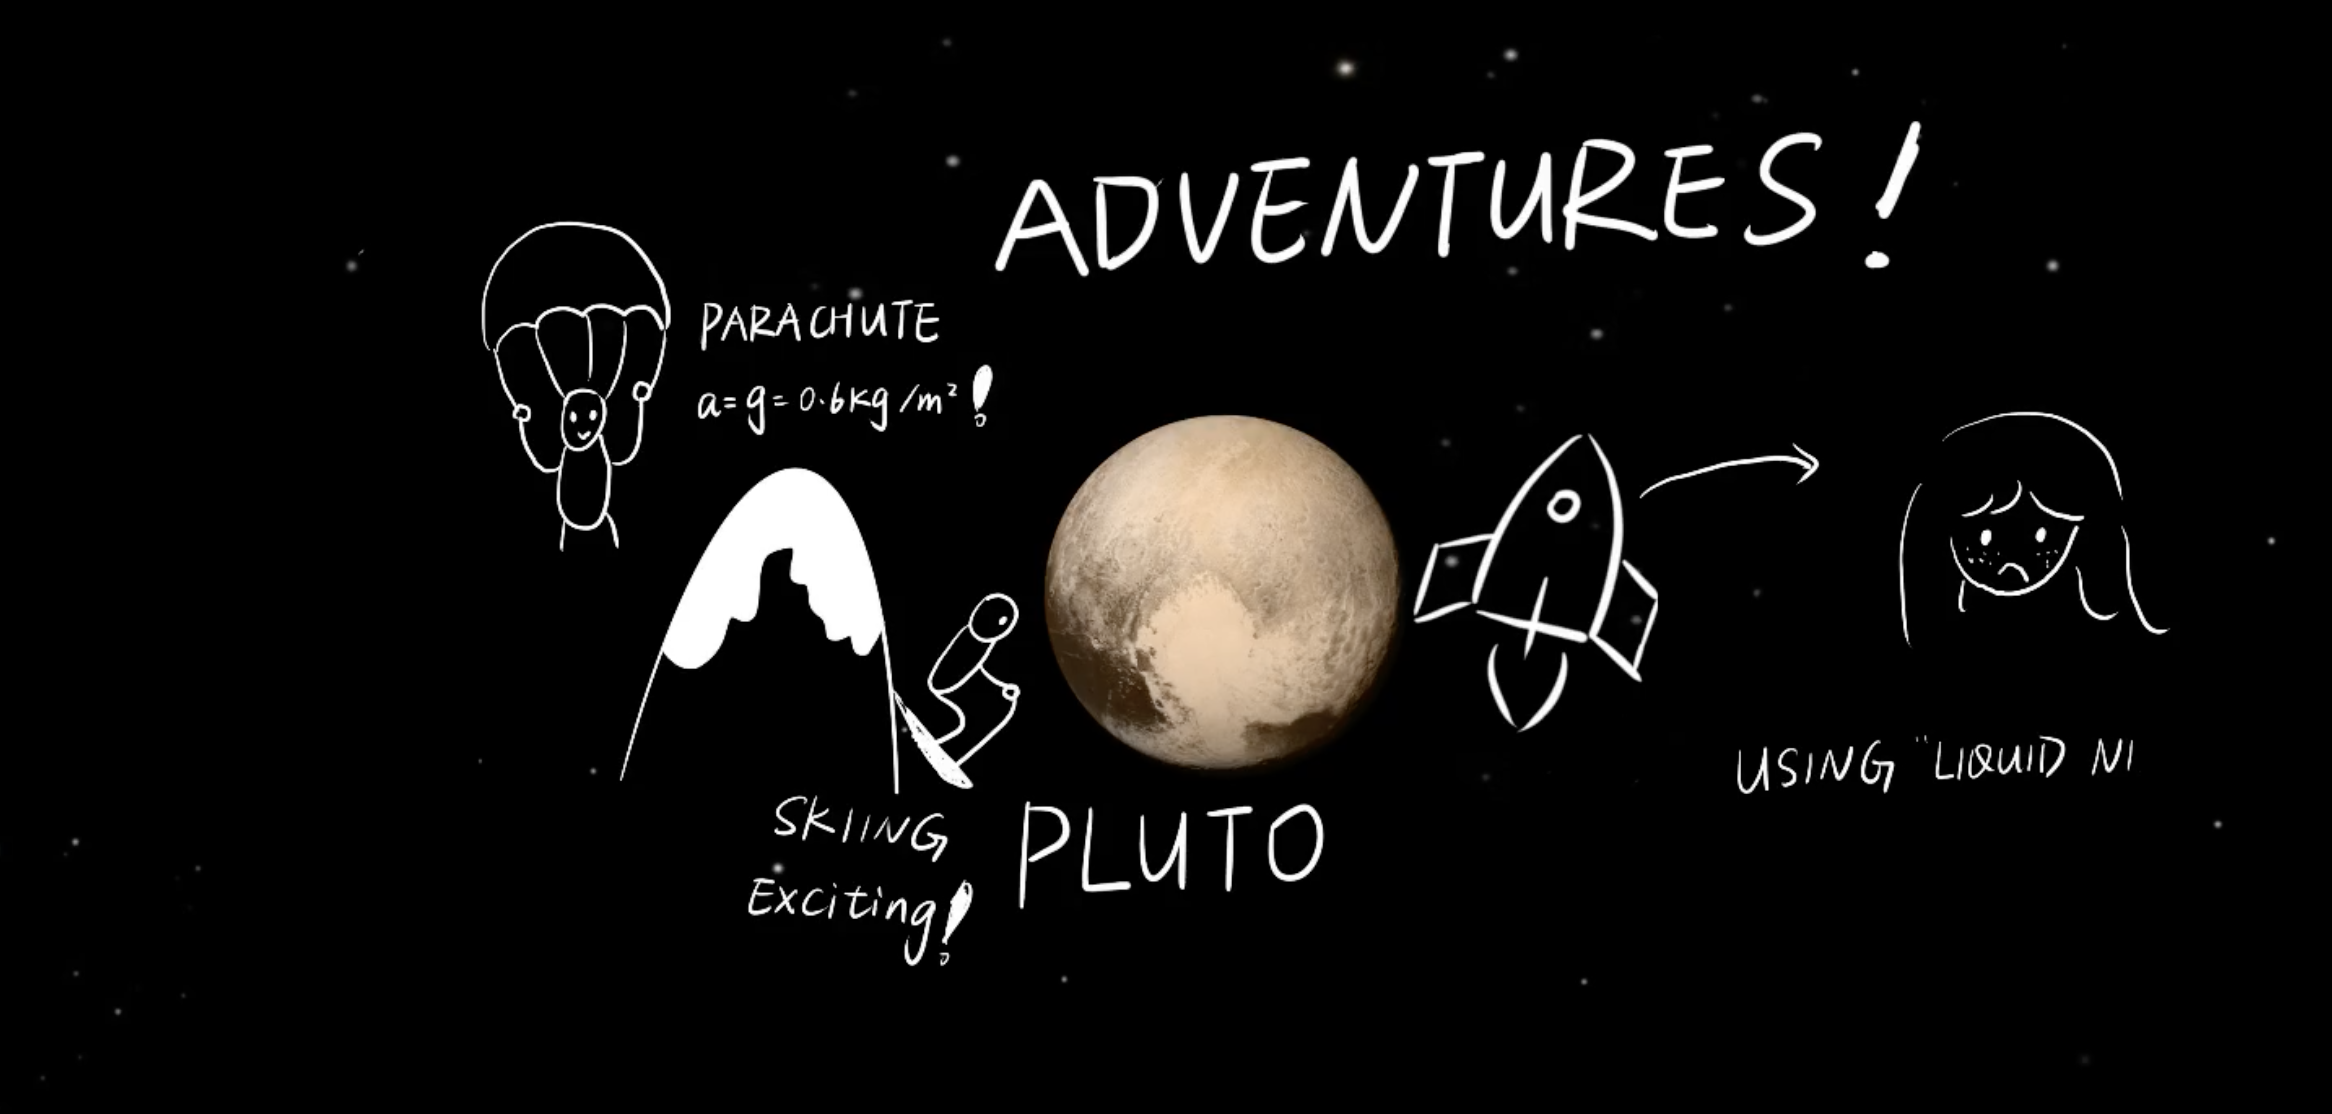 ADVENTURES!
PARACHUTE
a=g=0.6kg/m²!
SKIING
Exciting!
PLUTO
USING "LIQUID NI